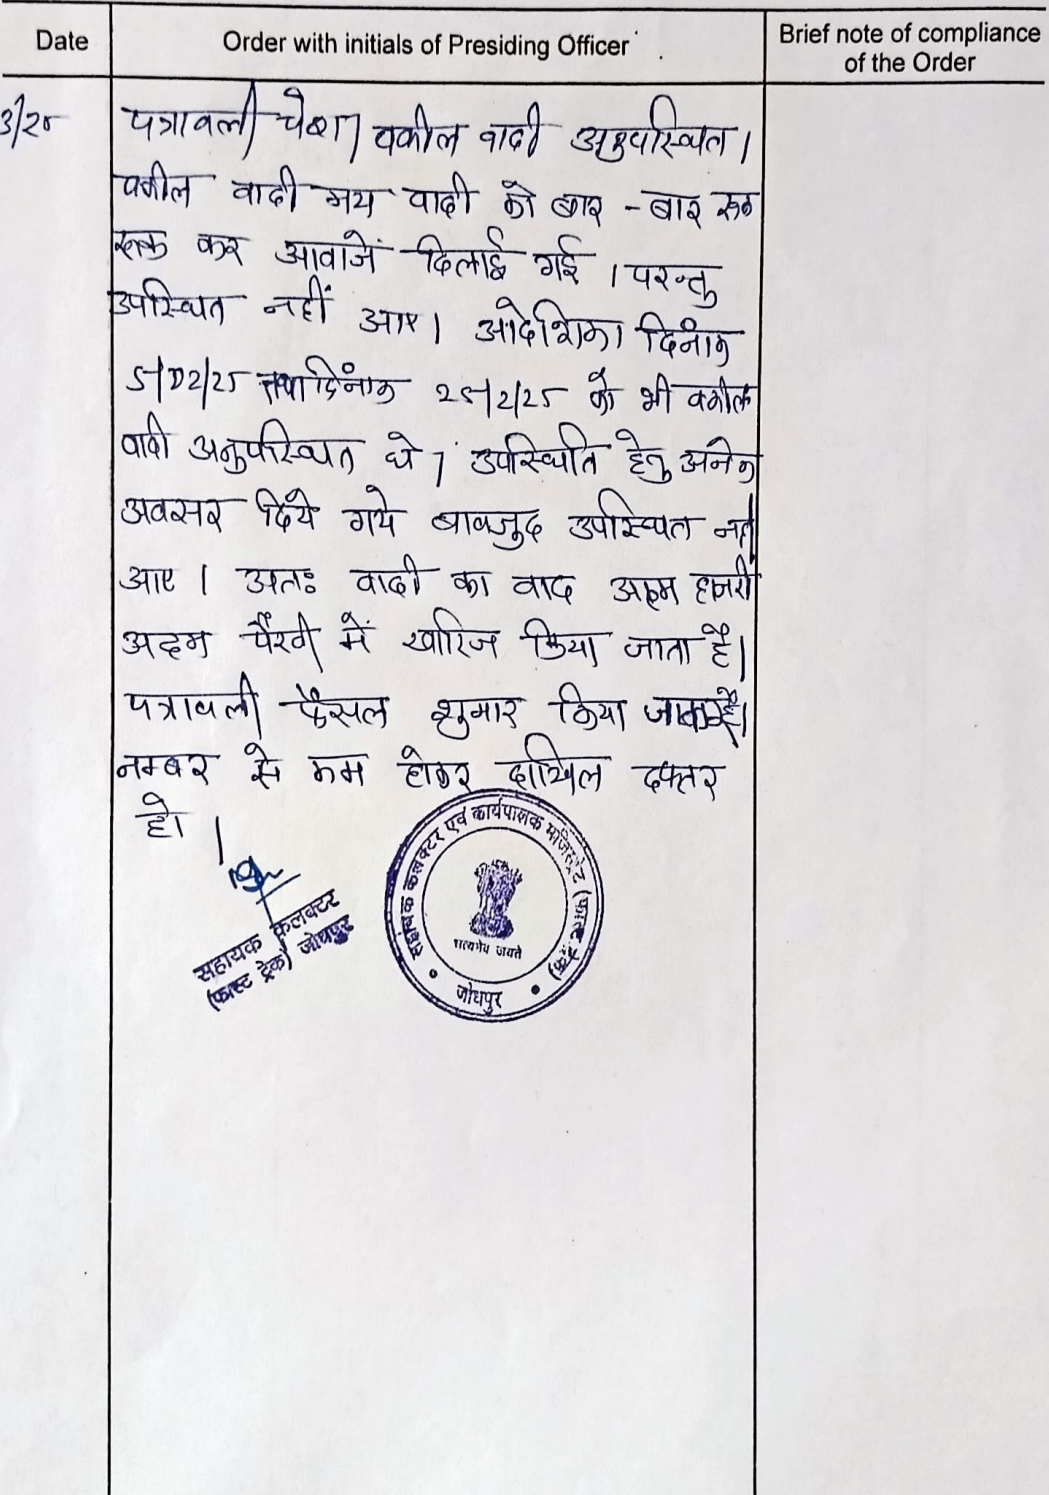 Date
Order with initials of Presiding Officer
Brief note of compliance
of the Order
3/25
पत्रावली पेश। वकील वादी अनुपस्थित।
वकील वादी मय वादी को बार - बार रूक
रूक कर आवाजें दिलाई गई । परन्तु
उपस्थित नहीं आए। आदेशिका दिनांक
5/02/25 तथा दिनांक 25/2/25 को भी वकील
वादी अनुपस्थित थे। उपस्थिति हेतु अनेक
अवसर दिये गये बावजुद उपस्थित नहीं
आए । अतः वादी का वाद अदम हाजरी
अदम पैरवी में खारिज किया जाता है।
पत्रावली फैसल शुमार किया
नम्बर से कम होकर दाखिल दफ्तर
हो।
सहायक कलक्टर
(फास्ट ट्रेक) जोधपुर
सहायक कलक्टर एवं कार्यपालक मजिस्ट्रेट (फास्ट ट्रेक)
सत्यमेव जयते
जोधपुर